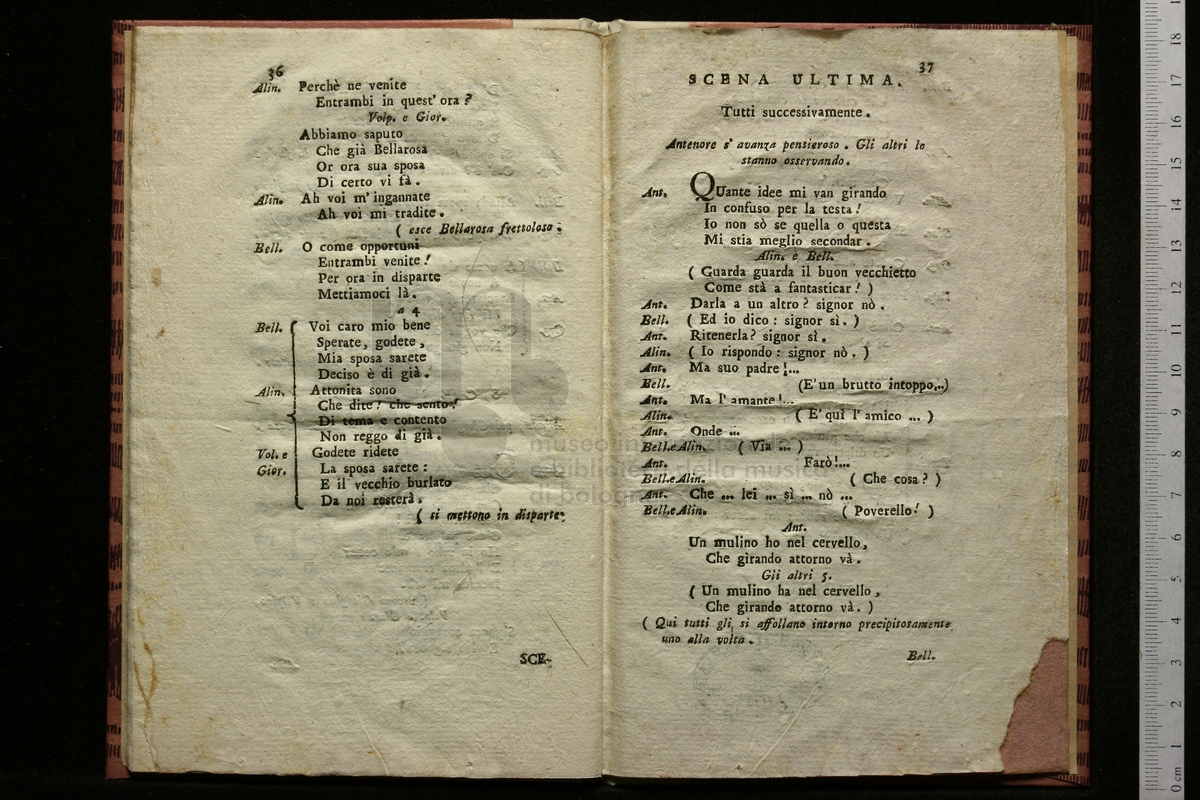 36
Alin. Perchè ne venite
Entrambi in quest' ora ?
Volp. e Gior.
Abbiamo saputo
Che già Bellarosa
Or ora sua sposa
Di certo vi fà .
Alin. Ah voi m' ingannate
Ah voi mi tradite .
( esce Bellarosa frettolosa .
Bell. O come opportuni
Entrambi venite !
Per ora in disparte
Mettiamoci là .
a 4
Bell. Voi caro mio bene
Sperate, godete ,
Mia sposa sarete
Deciso è di già .
Alin. Attonita sono
Che dite ? che sento !
Di tema e contento
Non reggo di già .
Vol. e Godete ridete
Gior. La sposa sarete :
E il vecchio burlato
Da noi resterà .
( si mettono in disparte:
SCE-
37
SCENA ULTIMA.
Tutti successivamente .
Antenore s' avanza pensieroso . Gli altri lo
stanno osservando .
Ant. QUante idee mi van girando
In confuso per la testa !
Io non sò se quella o questa
Mi stia meglio secondar .
Alin. e Bell.
( Guarda guarda il buon vecchietto
Come stà a fantasticar ! )
Ant. Darla a un altro ? signor nò .
Bell. ( Ed io dico : signor sì . )
Ant. Ritenerla ? signor sì .
Alin. ( Io rispondo : signor nò . )
Ant. Ma suo padre !...
Bell. (E' un brutto intoppo...)
Ant. Ma l' amante !...
Alin. ( E' quì l' amico ... )
Ant. Onde ...
Bell.e Alin. ( Via ... )
Ant. Farò !...
Bell.e Alin. ( Che cosa ? )
Ant. Che ... lei ... sì ... nò ...
Bell.e Alin. ( Poverello ! )
Ant.
Un mulino ho nel cervello ,
Che girando attorno và .
Gli altri 5.
( Un mulino ha nel cervello ,
Che girando attorno và . )
( Qui tutti gli si affollano intorno precipitosamente
uno alla volta .
Bell.
museo internazionale
e biblioteca della musica
di bologna